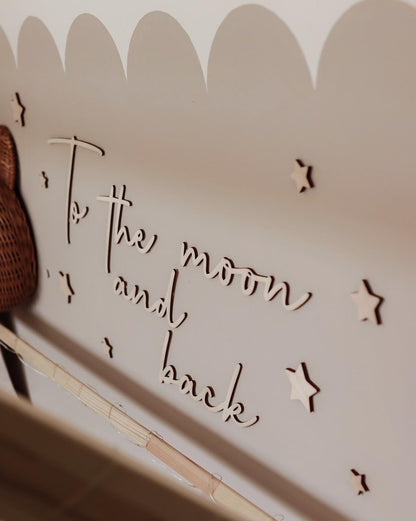 To the moon
and
back